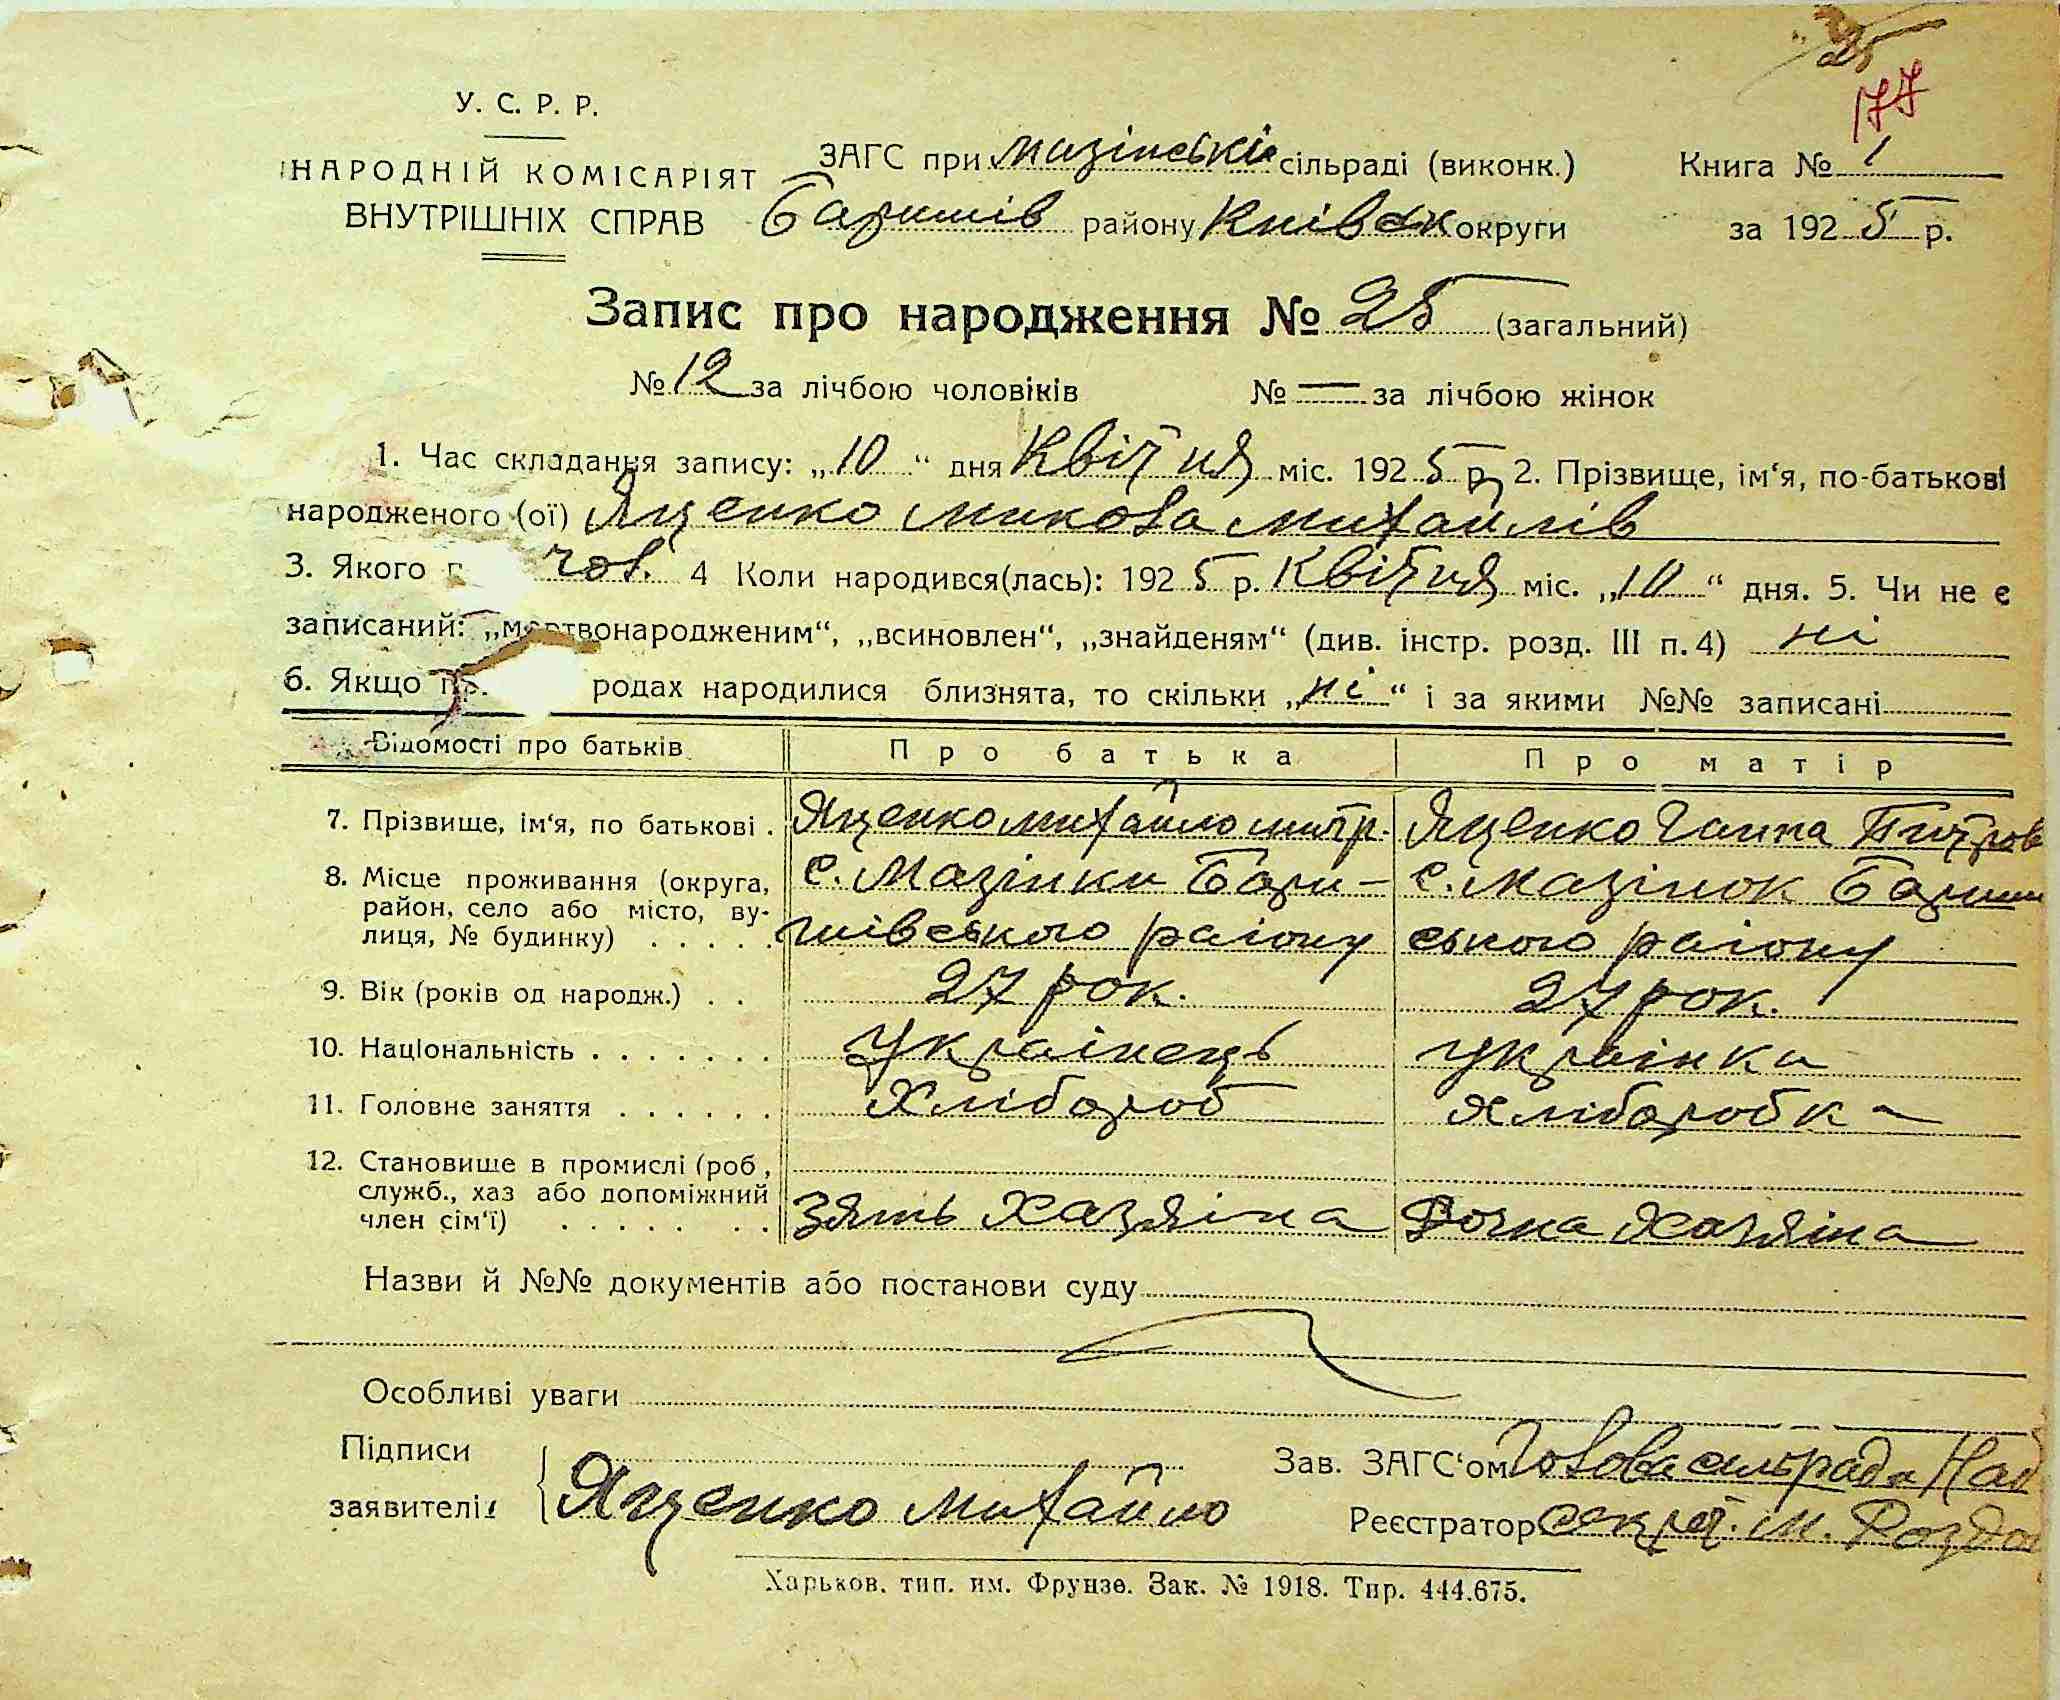 25
177
У. С. Р. Р.
НАРОДНІЙ КОМІСАРІЯТ
ВНУТРІШНІХ СПРАВ
ЗАГС при Мазінські сільраді (виконк.)
Баришів району Київськ округи
Книга № 1
за 1925 р.
Запис про народження № 25 (загальний)
№ 12 за лічбою чоловіків № — за лічбою жінок
1. Час складання запису: „10“ дня Квітня міс. 1925 р. 2. Прізвище, ім‘я, по-батькові
народженого (ої) Яценко Микола Михайлів
3. Якого п чол. 4 Коли народився(лась): 1925 р. Квітня міс. „10“ дня. 5. Чи не є
записаний: „мертвонародженим“, „всиновлен“, „знайденям“ (див. інстр. розд. III п. 4) ні
6. Якщо пр. родах народилися близнята, то скільки „ні“ і за якими №№ записані
Відомості про батьків Про батька Про матір
7. Прізвище, ім‘я, по батькові . Яценко Михайло Митр. Яценко Ганна Питров
8. Місце проживання (округа, с. Мазінки Бари- с. Мазінок Бариши
район, село або місто, ву-
лиця, № будинку) . . . . . шівського раіону ського раіону
9. Вік (років од народж.) . . 27 рок. 27 рок.
10. Національність . . . . . . . Українець українка
11. Головне заняття . . . . . . Хлібороб хліборобка
12. Становище в промислі (роб,
служб., хаз або допоміжний
член сім‘ї) . . . . . . . Зять Хазяіна Дочка Хазяіна
Назви й №№ документів або постанови суду
Особливі уваги
Підписи
заявителів Яценко Михайло
Зав. ЗАГС‘ом Голова сільради
Реєстратор секрет. М. Роздо
Харьков. тип. им. Фрунзе. Зак. № 1918. Тир. 444.675.